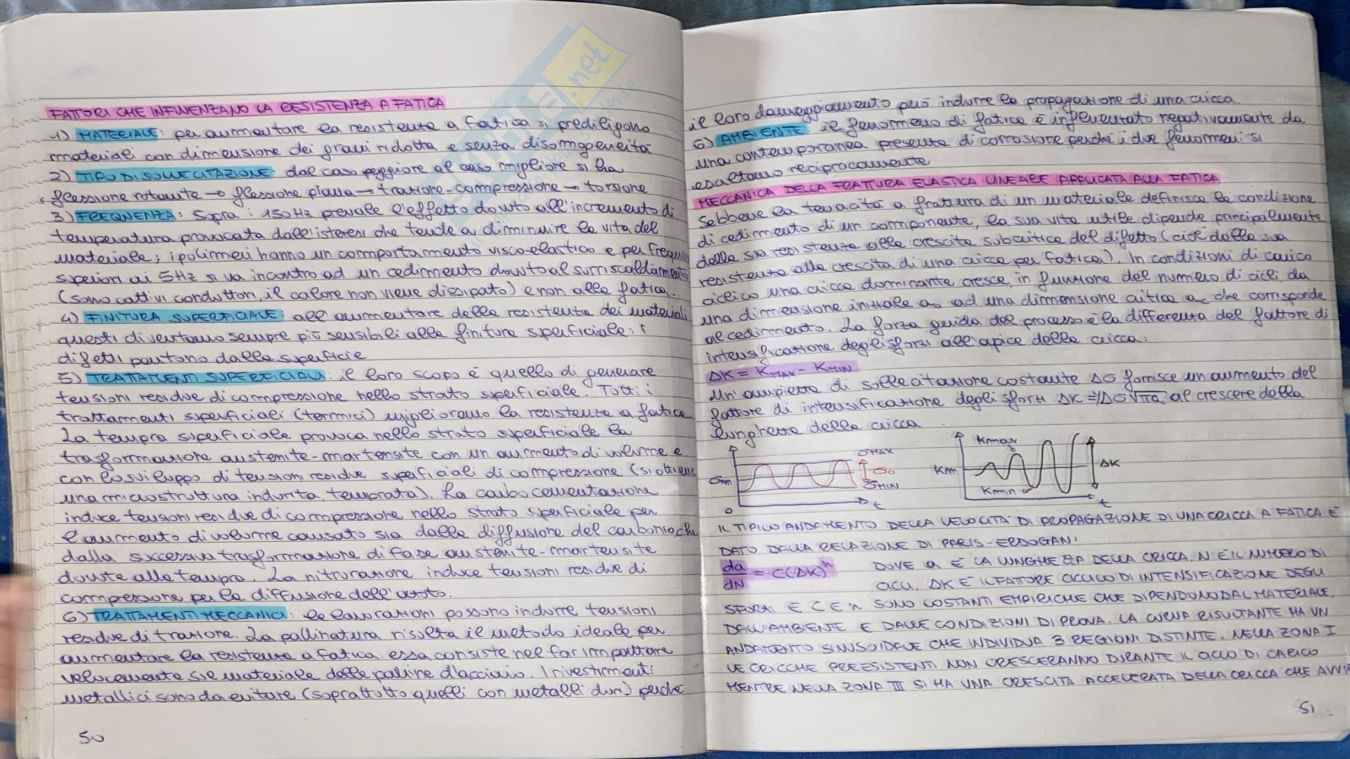 FATTORI CHE INFLUENZANO LA RESISTENZA A FATICA
1) MATERIALE: per aumentare la resistenza a fatica si prediligono
materiali con dimensione dei grani ridotta e senza disomogeneità
2) TIPO DI SOLLECITAZIONE: dal caso peggiore al caso migliore si ha
flessione rotante → flessione plana → trazione-compressione → torsione
3) FREQUENZA: Sopra i 150Hz prevale l'effetto dovuto all'incremento di
temperatura provocata dall'isteresi che tende a diminuire la vita del
materiale; i polimeri hanno un comportamento visco-elastico e per frequenze
superiori ai 5Hz si va incontro ad un cedimento dovuto al surriscaldamento
(sono cattivi conduttori, il calore non viene dissipato) e non alla fatica.
4) FINITURA SUPERFICIALE: all'aumentare della resistenza dei materiali
questi diventano sempre più sensibili alla finitura superficiale: i
difetti partono dalla superficie
5) TRATTAMENTI SUPERFICIALI: il loro scopo è quello di generare
tensioni residue di compressione nello strato superficiale. Tutti i
trattamenti superficiali (termici) migliorano la resistenza a fatica
La tempra superficiale provoca nello strato superficiale la
trasformazione austenite-martensite con un aumento di volume e
con lo sviluppo di tensioni residue superficiali di compressione (si ottiene
una microstruttura indurita, temprata). La carbocementazione
induce tensioni residue di compressione nello strato superficiale per
l'aumento di volume causato sia dalla diffusione del carbonio che
dalla successiva trasformazione di fase austenite-martensite
dovute alla tempra. La nitrurazione induce tensioni residue di
compressione per la diffusione dell'azoto.
6) TRATTAMENTI MECCANICI: le lavorazioni possono indurre tensioni
residue di trazione. La pallinatura risulta il metodo ideale per
aumentare la resistenza a fatica essa consiste nel far impattare
velocemente sul materiale delle palline d'acciaio. I rivestimenti
metallici sono da evitare (soprattutto quelli con metalli duri) perché
50
il loro danneggiamento può indurre la propagazione di una cricca
6) AMBIENTE il fenomeno di fatica è influenzato negativamente da
una contemporanea presenza di corrosione perché i due fenomeni si
esaltano reciprocamente
MECCANICA DELLA FRATTURA ELASTICA LINEARE APPLICATA ALLA FATICA
Sebbene la tenacità a frattura di un materiale definisca le condizione
di cedimento di un componente, la sua vita utile dipende principalmente
dalla sua resistenza alla crescita subcritica del difetto (cioè dalla sua
resistenza alla crescita di una cricca per fatica). In condizioni di carico
ciclico una cricca dominante cresce, in funzione del numero di cicli, da
una dimensione iniziale a₀ ad una dimensione critica ac che corrisponde
al cedimento. La forza guida del processo è la differenza del fattore di
intensificazione degli sforzi all'apice della cricca.
ΔK = KMAX - KMIN
Un'ampiezza di sollecitazione costante Δσ fornisce un aumento del
fattore di intensificazione degli sforzi ΔK = Δσ√πa al crescere della
lunghezza della cricca
σm σMAX σa σMIN 0 t
Km Kmax Kmin ΔK t
IL TIPICO ANDAMENTO DELLA VELOCITÀ DI PROPAGAZIONE DI UNA CRICCA A FATICA È
DATO DALLA RELAZIONE DI PARIS-ERDOGAN:
da/dN = C(ΔK)ⁿ DOVE a È LA LUNGHEZZA DELLA CRICCA, N È IL NUMERO DI
CICLI, ΔK È IL FATTORE CICLICO DI INTENSIFICAZIONE DEGLI
SFORZI E C E n SONO COSTANTI EMPIRICHE CHE DIPENDONO DAL MATERIALE,
DALL'AMBIENTE E DALLE CONDIZIONI DI PROVA. LA CURVA RISULTANTE HA UN
ANDAMENTO SINUSOIDALE CHE INDIVIDUA 3 REGIONI DISTINTE. NELLA ZONA I
LE CRICCHE PREESISTENTI NON CRESCERANNO DURANTE IL CICLO DI CARICO
MENTRE NELLA ZONA III SI HA UNA CRESCITA ACCELERATA DELLA CRICCA CHE AVVI
51